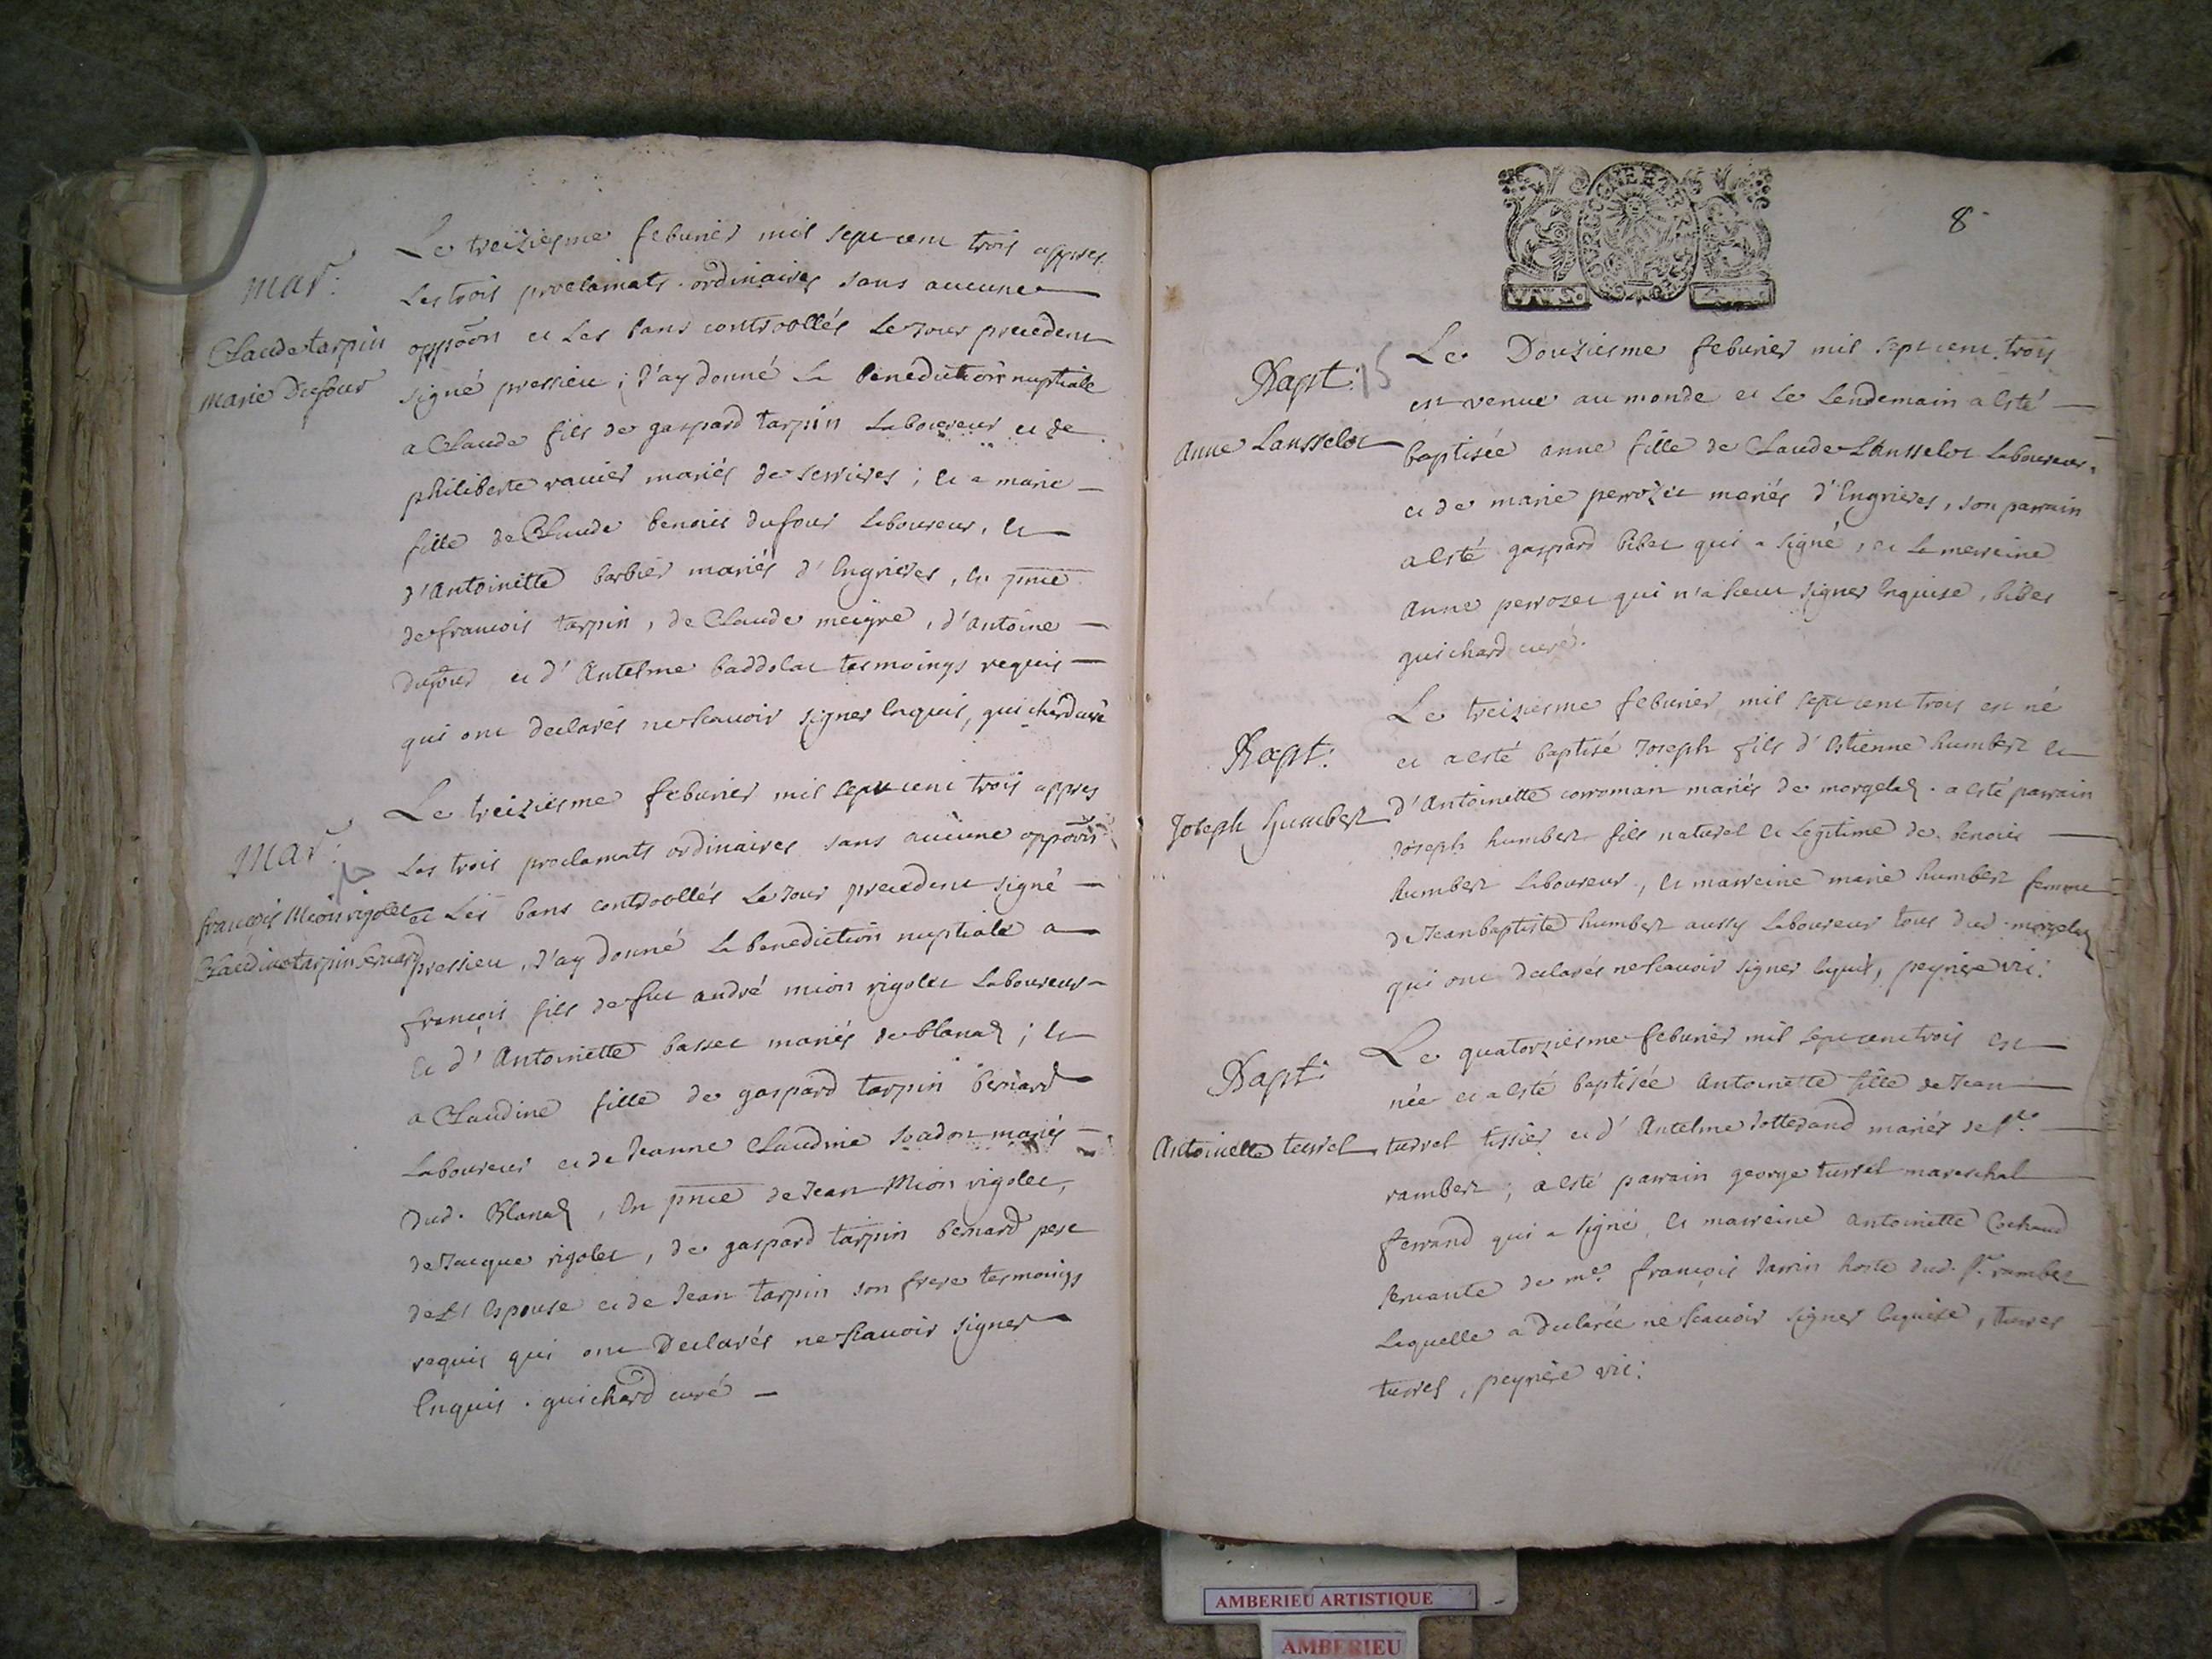 mar.
Claude tarpin
marie Dufour
Le treiziesme feburier mil sept cent trois appres
Les trois proclamats ordinaires sans aucune
oppoõn et Les bans controollés Le jour precedent
signé pressieu ; J'ay donné La benediction nuptiale
a Claude fils de gaspard tarpin Laboureur et de
philiberte ravier mariés de serrieres ; et a marie
fille de Claude benoict dufour laboureur, et
d'Antoinette barbier mariés d'Engrieres, en pnce
de francois tarpin, de Claude meigre, d'antoine
dufour et d'Antelme baddolat tesmoings requis
qui ont declarés ne scauoir signer Enquis, guichard curé
mar.
françois Mion rigolet
Claudine tarpin bernard
Le treiziesme feburier mil sept cent trois appres
Les trois proclamats ordinaires sans aucune oppoõn
et Les bans controollés Le jour precedent signé
pressieu, J'ay donné La benediction nuptiale a
françois fils de fut andré mion rigolet Laboureur
et d'Antoinette basset mariés de blanaz ; et
a Claudine fille de gaspard tarpin bernard
Laboureur et de Jeanne Claudine mariés
dud. Blanaz, En pnce de Jean Mion rigolet,
de Jacque rigolet, de gaspard tarpin bernard pere
de Espouse et de Jean tarpin son frere tesmoings
requis qui ont Declarés ne scauoir signer
Enquis. guichard curé
8
Bapt. 15
Anne Lansselot
Le Douziesme feburier mil sept cent trois
est venue au monde et Le Lendemain a Esté
baptisée anne fille de Claude Lansselot Laboureur
et de marie perrozet mariés d'Engrieres, son parrain
a Esté gaspard bibet qui a signé, et La merreine
Anne perrozet qui n'a sceu signer Enquise, bibet
guichard curé.
Bapt.
Joseph humbert
Le treiziesme feburier mil sept cent trois est né
et a esté baptisé Joseph fils d'Estienne humbert et
d'Antoinette corroman mariés de morgelaz. a esté parrain
Joseph humbert fils naturel et Legitime de benoict
humbert Laboureur, et marreine marie humbert femme
de Jean baptiste humbert aussy Laboureur tous dud. morgelaz
qui ont declarés ne scauoir signer Enquis, peyriere vic.
Bapt.
Antoinette turrel
Le quatorziesme feburier mil sept cent trois est
née et a esté baptisée Antoinette fille de Jean
turrel tissier et d'Antelme Jotterand mariés de St.
rambert ; a esté parrain george turrel mareschal
ferrand qui a signé, et marreine antoinette Cochand
seruante de me. françois Jarrin hoste dud. St. rambert
Laquelle a declarée ne scauoir signer Enquise,
turrel, peyriere vic.
AMBERIEU ARTISTIQUE
AMBERIEU